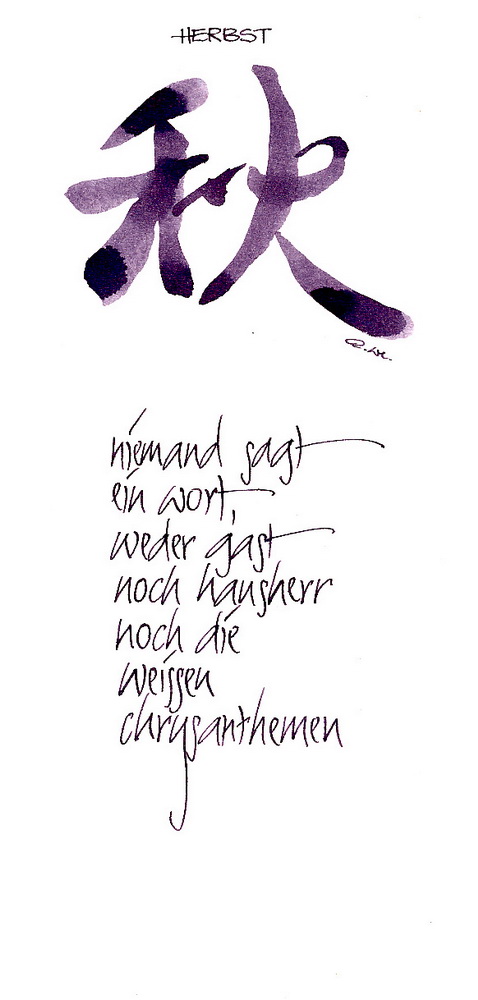 HERBST
秋
niemand sagt
ein wort,
weder gast
noch hausherr
noch die
weissen
chrysanthemen